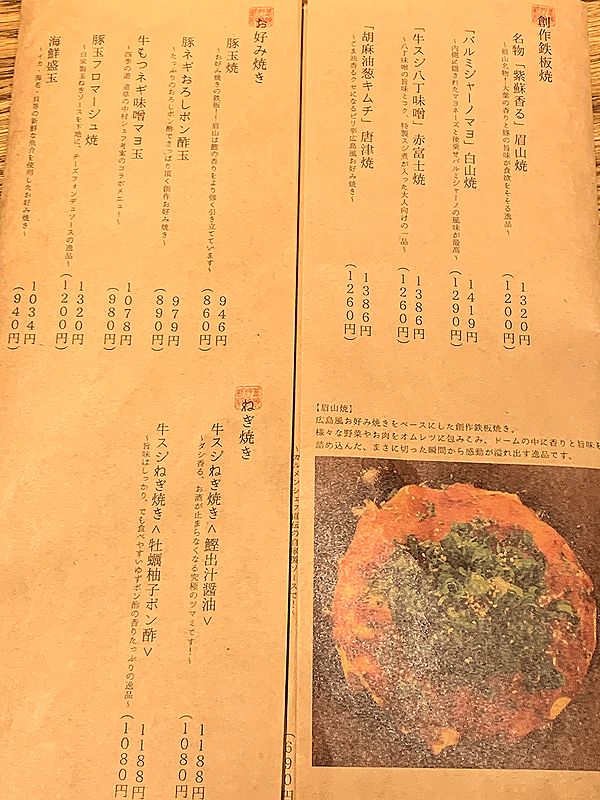 創作鉄板焼
名物「紫蘇香る」眉山焼
～眉山名物！大葉の香りと豚の旨味が食欲をそそる逸品～
1320円
(1200円)
「パルミジャーノマヨ」白山焼
～内側に隠されたマヨネーズと後乗せパルミジャーノの風味が最高～
1419円
(1290円)
「牛スジ八丁味噌」赤富士焼
～八丁味噌の旨味とコク、特製スジ煮が入った大人向けの一品～
1386円
(1260円)
「胡麻油葱キムチ」唐津焼
～ごま油香るクセになるピリ辛広島風お好み焼き～
1386円
(1260円)
【眉山焼】
広島風お好み焼きをベースにした創作鉄板焼き。
様々な野菜やお肉をオムレツに包みこみ、ドームの中に香りと旨味を
詰め込んだ、まさに切った瞬間から感動が溢れ出す逸品です。
お好み焼き
豚玉焼
～お好み焼きの鉄板！！眉山は鰹の香りをより強く引き立てています～
946円
(860円)
豚ネギおろしポン酢玉
～たっぷりのおろしポン酢でさっぱり頂く創作お好み焼き～
979円
(890円)
牛もつネギ味噌マヨ玉
～四季の遊 道草の中村シェフ考案のコラボメニュー！～
1078円
(980円)
豚玉フロマージュ焼
～自家製玉ねぎソースを下地に、チーズフォンデュソースの逸品～
1320円
(1200円)
海鮮盛玉
～イカ、海老、貝等の新鮮な魚介を使用したお好み焼き～
1034円
(940円)
ねぎ焼き
牛スジねぎ焼き＜鰹出汁醤油＞
～ダシ香る、お酒が止まらなくなる究極のツマミです！～
1188円
(1080円)
牛スジねぎ焼き＜牡蠣柚子ポン酢＞
～旨味はしっかり、でも食べやすいゆずポン酢の香りたっぷりの逸品～
1188円
(1080円)
(690円